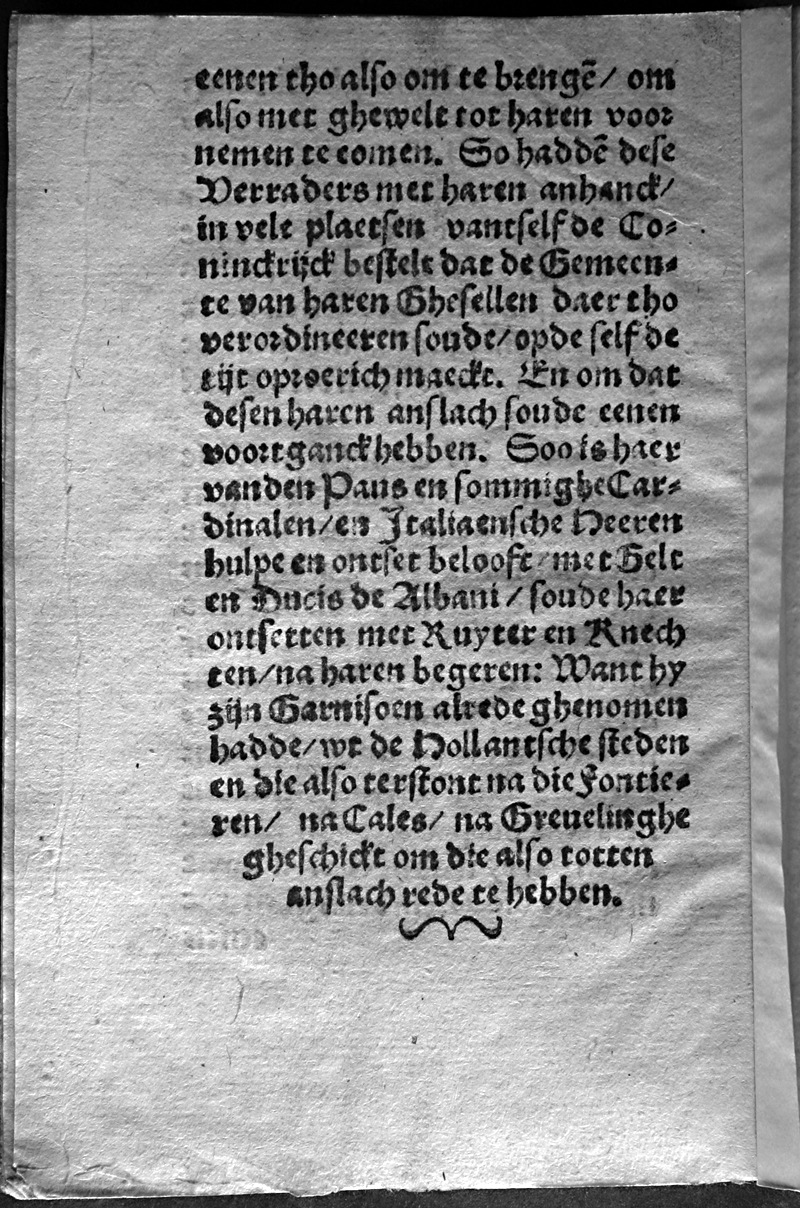 eenen tho also om te brengē/ om
also met ghewelt tot haren voor
nemen te comen. So haddē dese
Verraders met haren anhanck/
in vele plaetsen vantselfde Co⸗
ninckrijck bestelt dat de Gemeen⸗
te van haren Ghesellen daer tho
verordineeren soude/opde selfde
tijt oproerich maeckt. En om dat
desen haren anslach soude eenen
voortganck hebben. Soo is haer
vanden Paus en sommighe Car⸗
dinalen/en Italiaensche Heeren
hulpe en ontset belooft/met Gelt
en Ducis de Albani/ soude haer
ontsetten met Ruyter en Knech
ten/na haren begeren: Want hy
zijn Garnisoen alrede ghenomen
hadde/wt de Hollantsche steden
en die also terstont na die Fontie⸗
ren/ na Cales/ na Greuelinghe
gheschickt om die also totten
anslach rede te hebben.